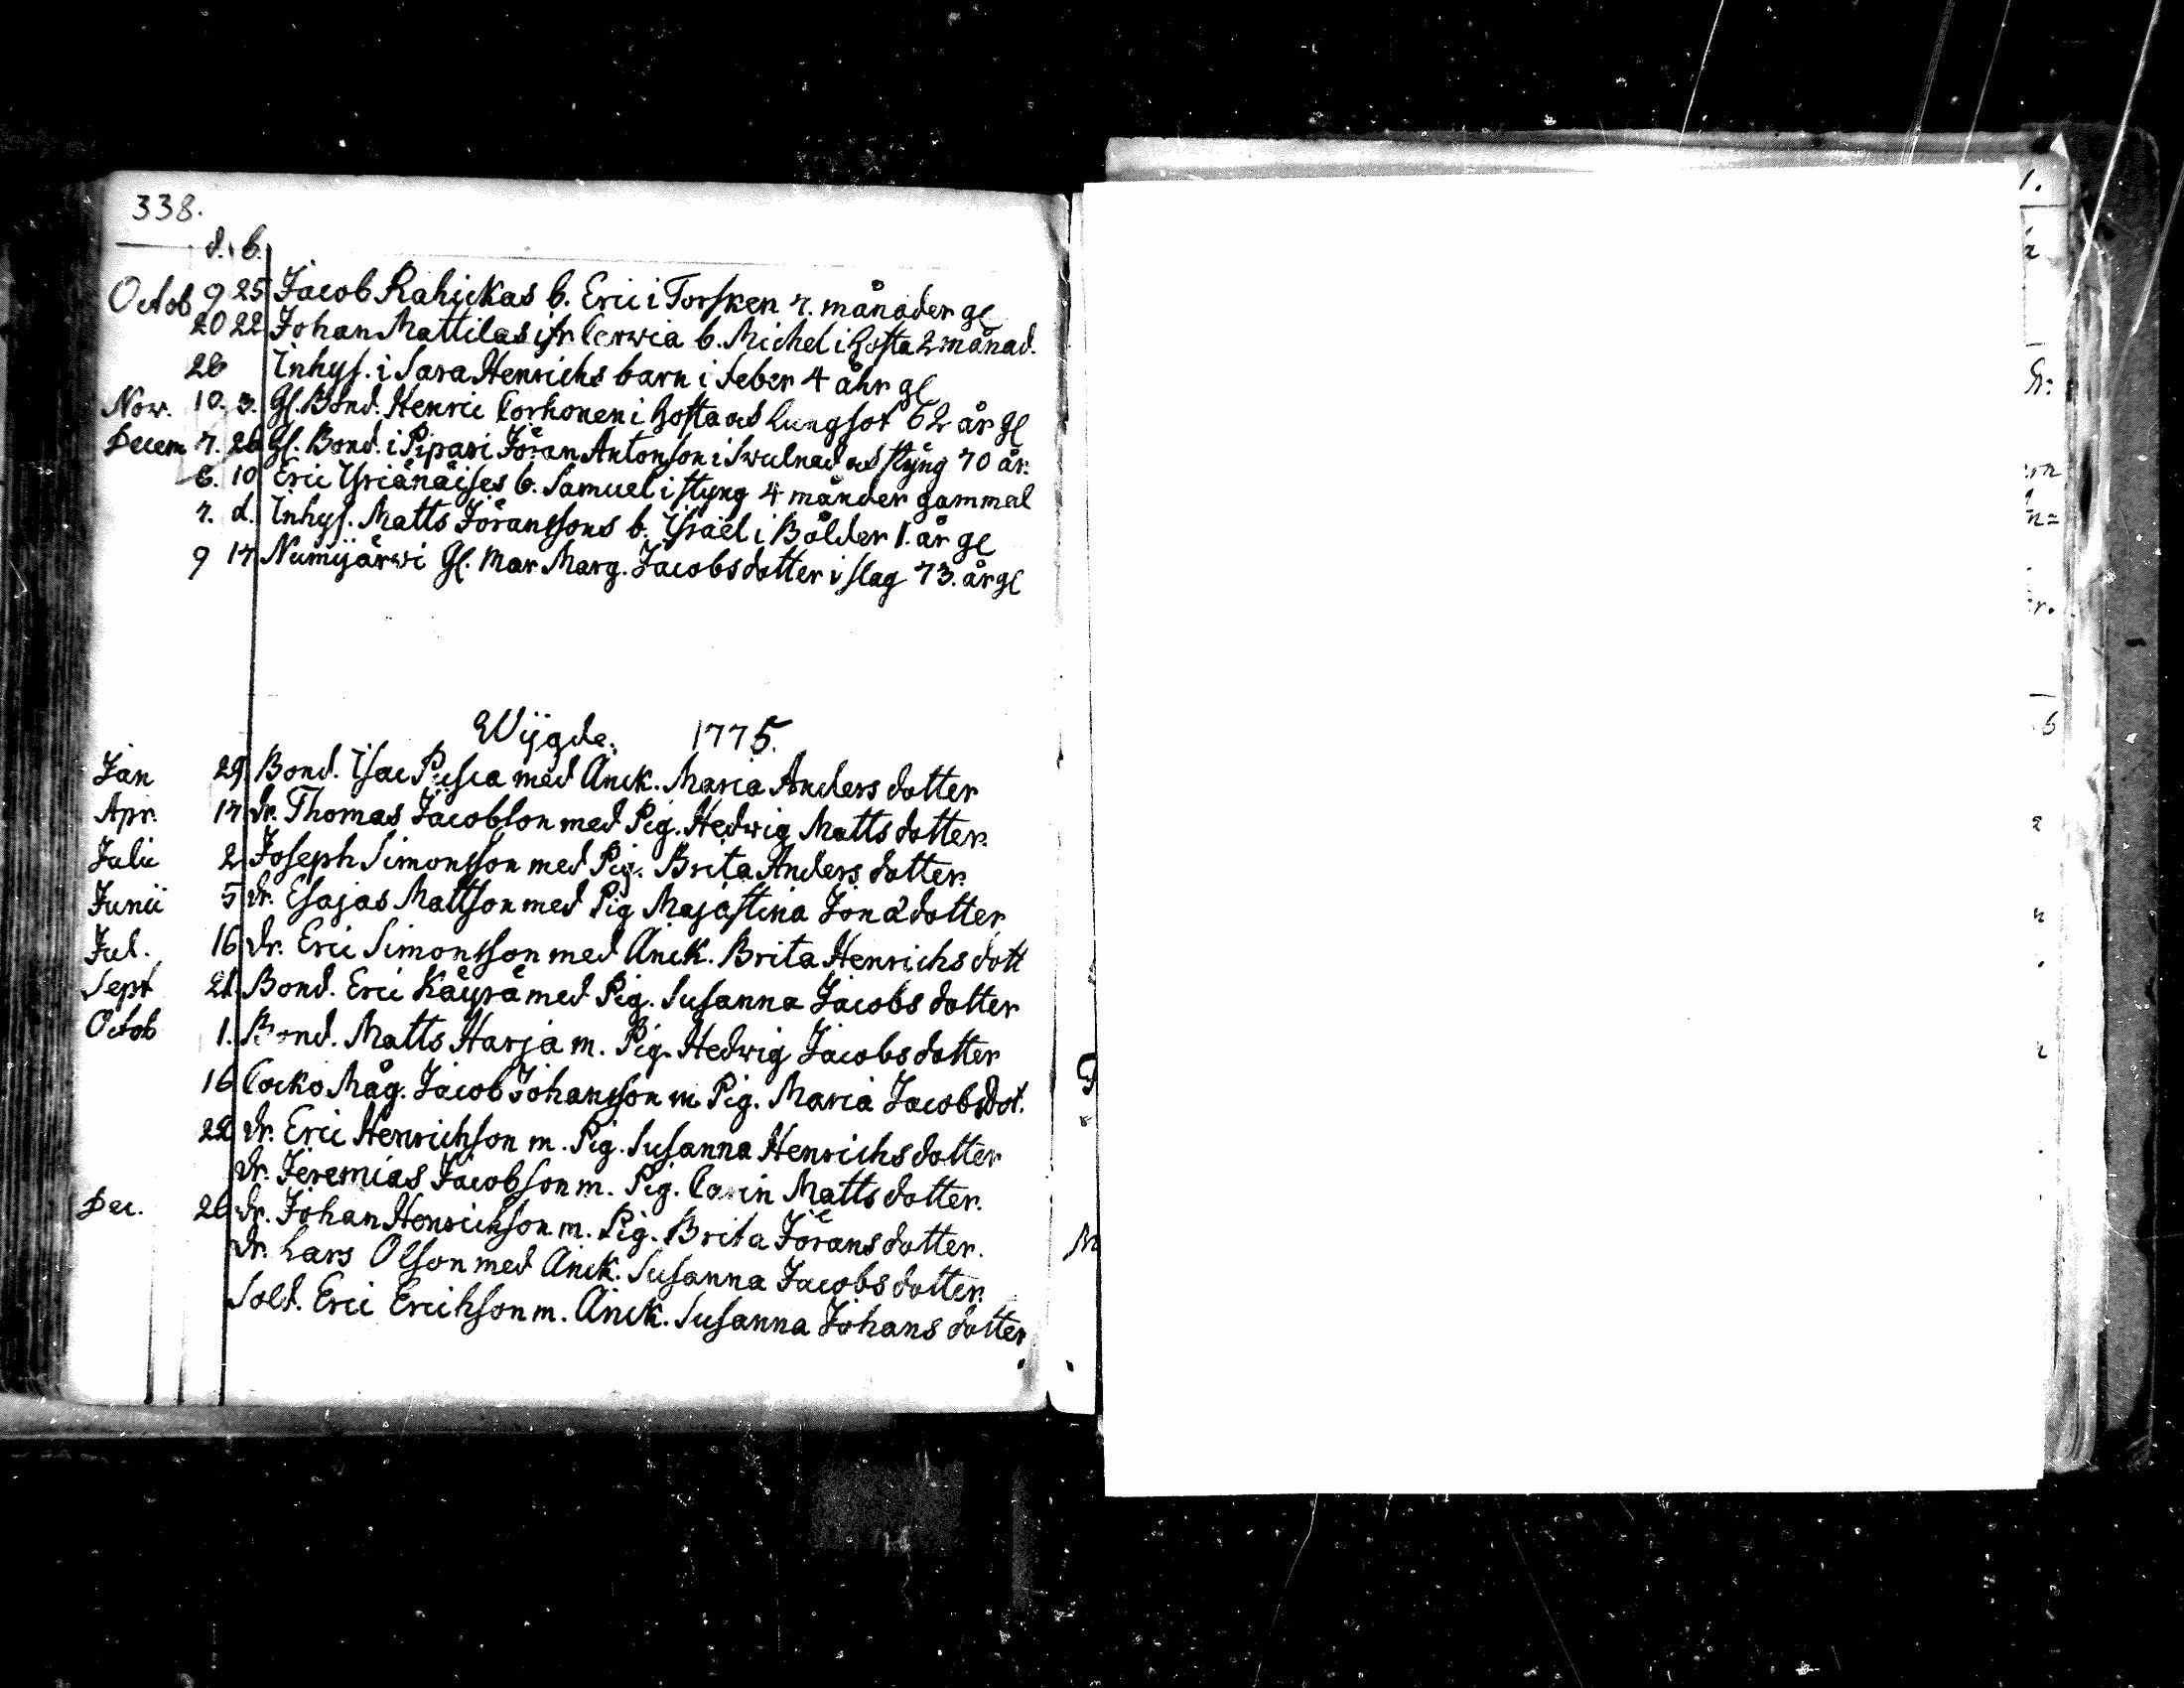 338.
d. b.
Octob 9 25 Jacob Rahickas b. Eric i Torsken 7. månader gl
20 22 Johan Mattilas ifr. Cerwia b. Michel i hosta 2 månad.
26 Inhys. i Sara Henrichs barn i feber 4 åhr gl
Nov. 10. 3. Gl. Bond. Henric Corhonen i hosta ad lungsot 62 år gl
Decem 7. 26 Gl. Bond. i Pipari Jöran Antonson i swulnad ad styng 70 år.
6. 10 Eric Yrjänäises b. Samuel i styng 4 månder gammal
7. d. Inhys. Matts Jöranssons b. Israel i Bölder 1. år gl
9 17 Numijärwi Gl. Mor Marg. Jacobsdotter i slag 73. år gl
Wijgde. 1775.
Jan 29 Bond. Isac Pusca med Änck. Maria Anders dotter
Apr. 17 dr. Thomas Jacobson med Pig. Hedwig Matts dotter.
Julii 2 Joseph Simonsson med Pig. Brita Anders dotter.
Junii 5 dr. Esajas Mattson med Pig Majastina Jonædotter
Jul. 16 dr. Eric Simonsson med Änck. Brita Henrichs dott
Sept 21 Bond. Eric Käyrä med Pig. Susanna Jacobs dotter
Octob 1. Bond. Matts Harja m. Pig. Hedwig Jacobs dotter
16 Cocko Måg. Jacob Johansson m. Pig. Maria Jacobsdot.
22 dr. Eric Henrichson m. Pig. Susanna Henrichs dotter
dr. Jeremias Jacobson m. Pig. Carin Matts dotter.
Dec. 26 dr. Johan Henrichson m. Pig. Brita Jörans dotter.
dr. Lars Olson med Änck. Susanna Jacobs dotter.
Sold. Eric Erichson m. Änck. Susanna Johans dotter